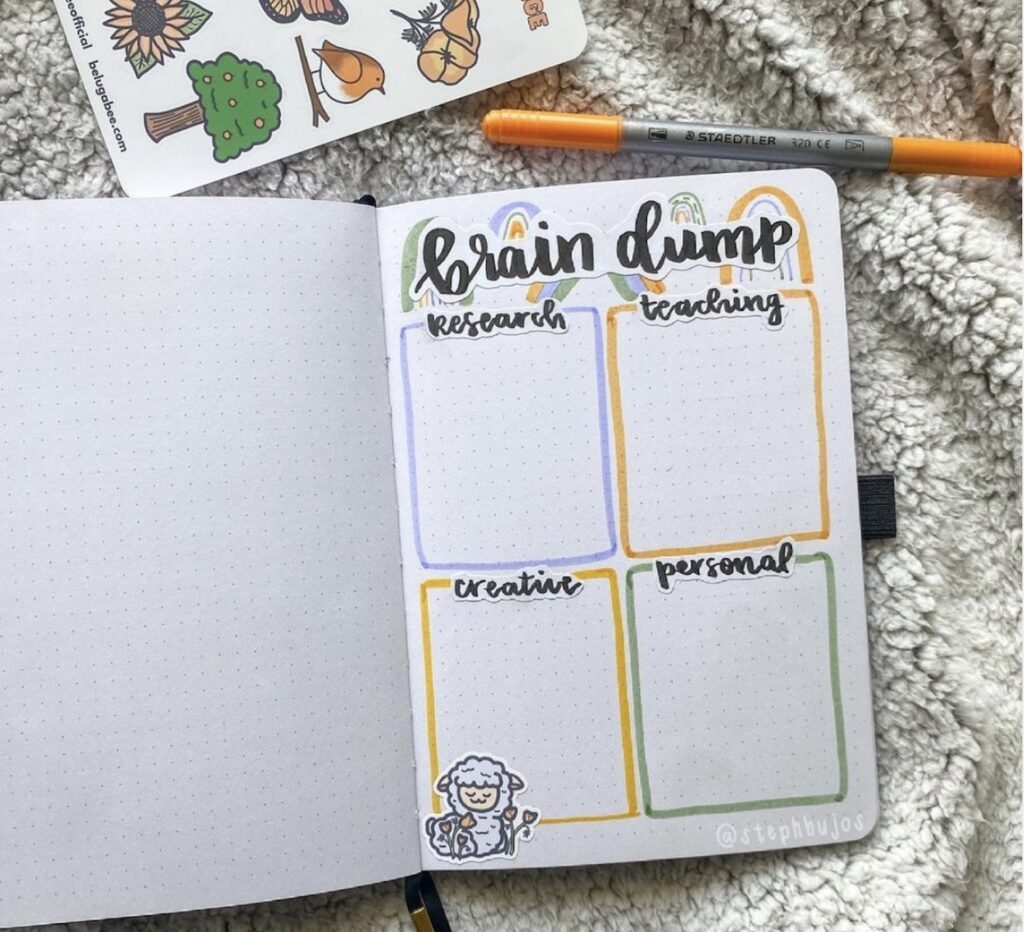 belugabee.com
STAEDTLER 320 CE
brain dump
research
teaching
creative
personal
@stephbujos